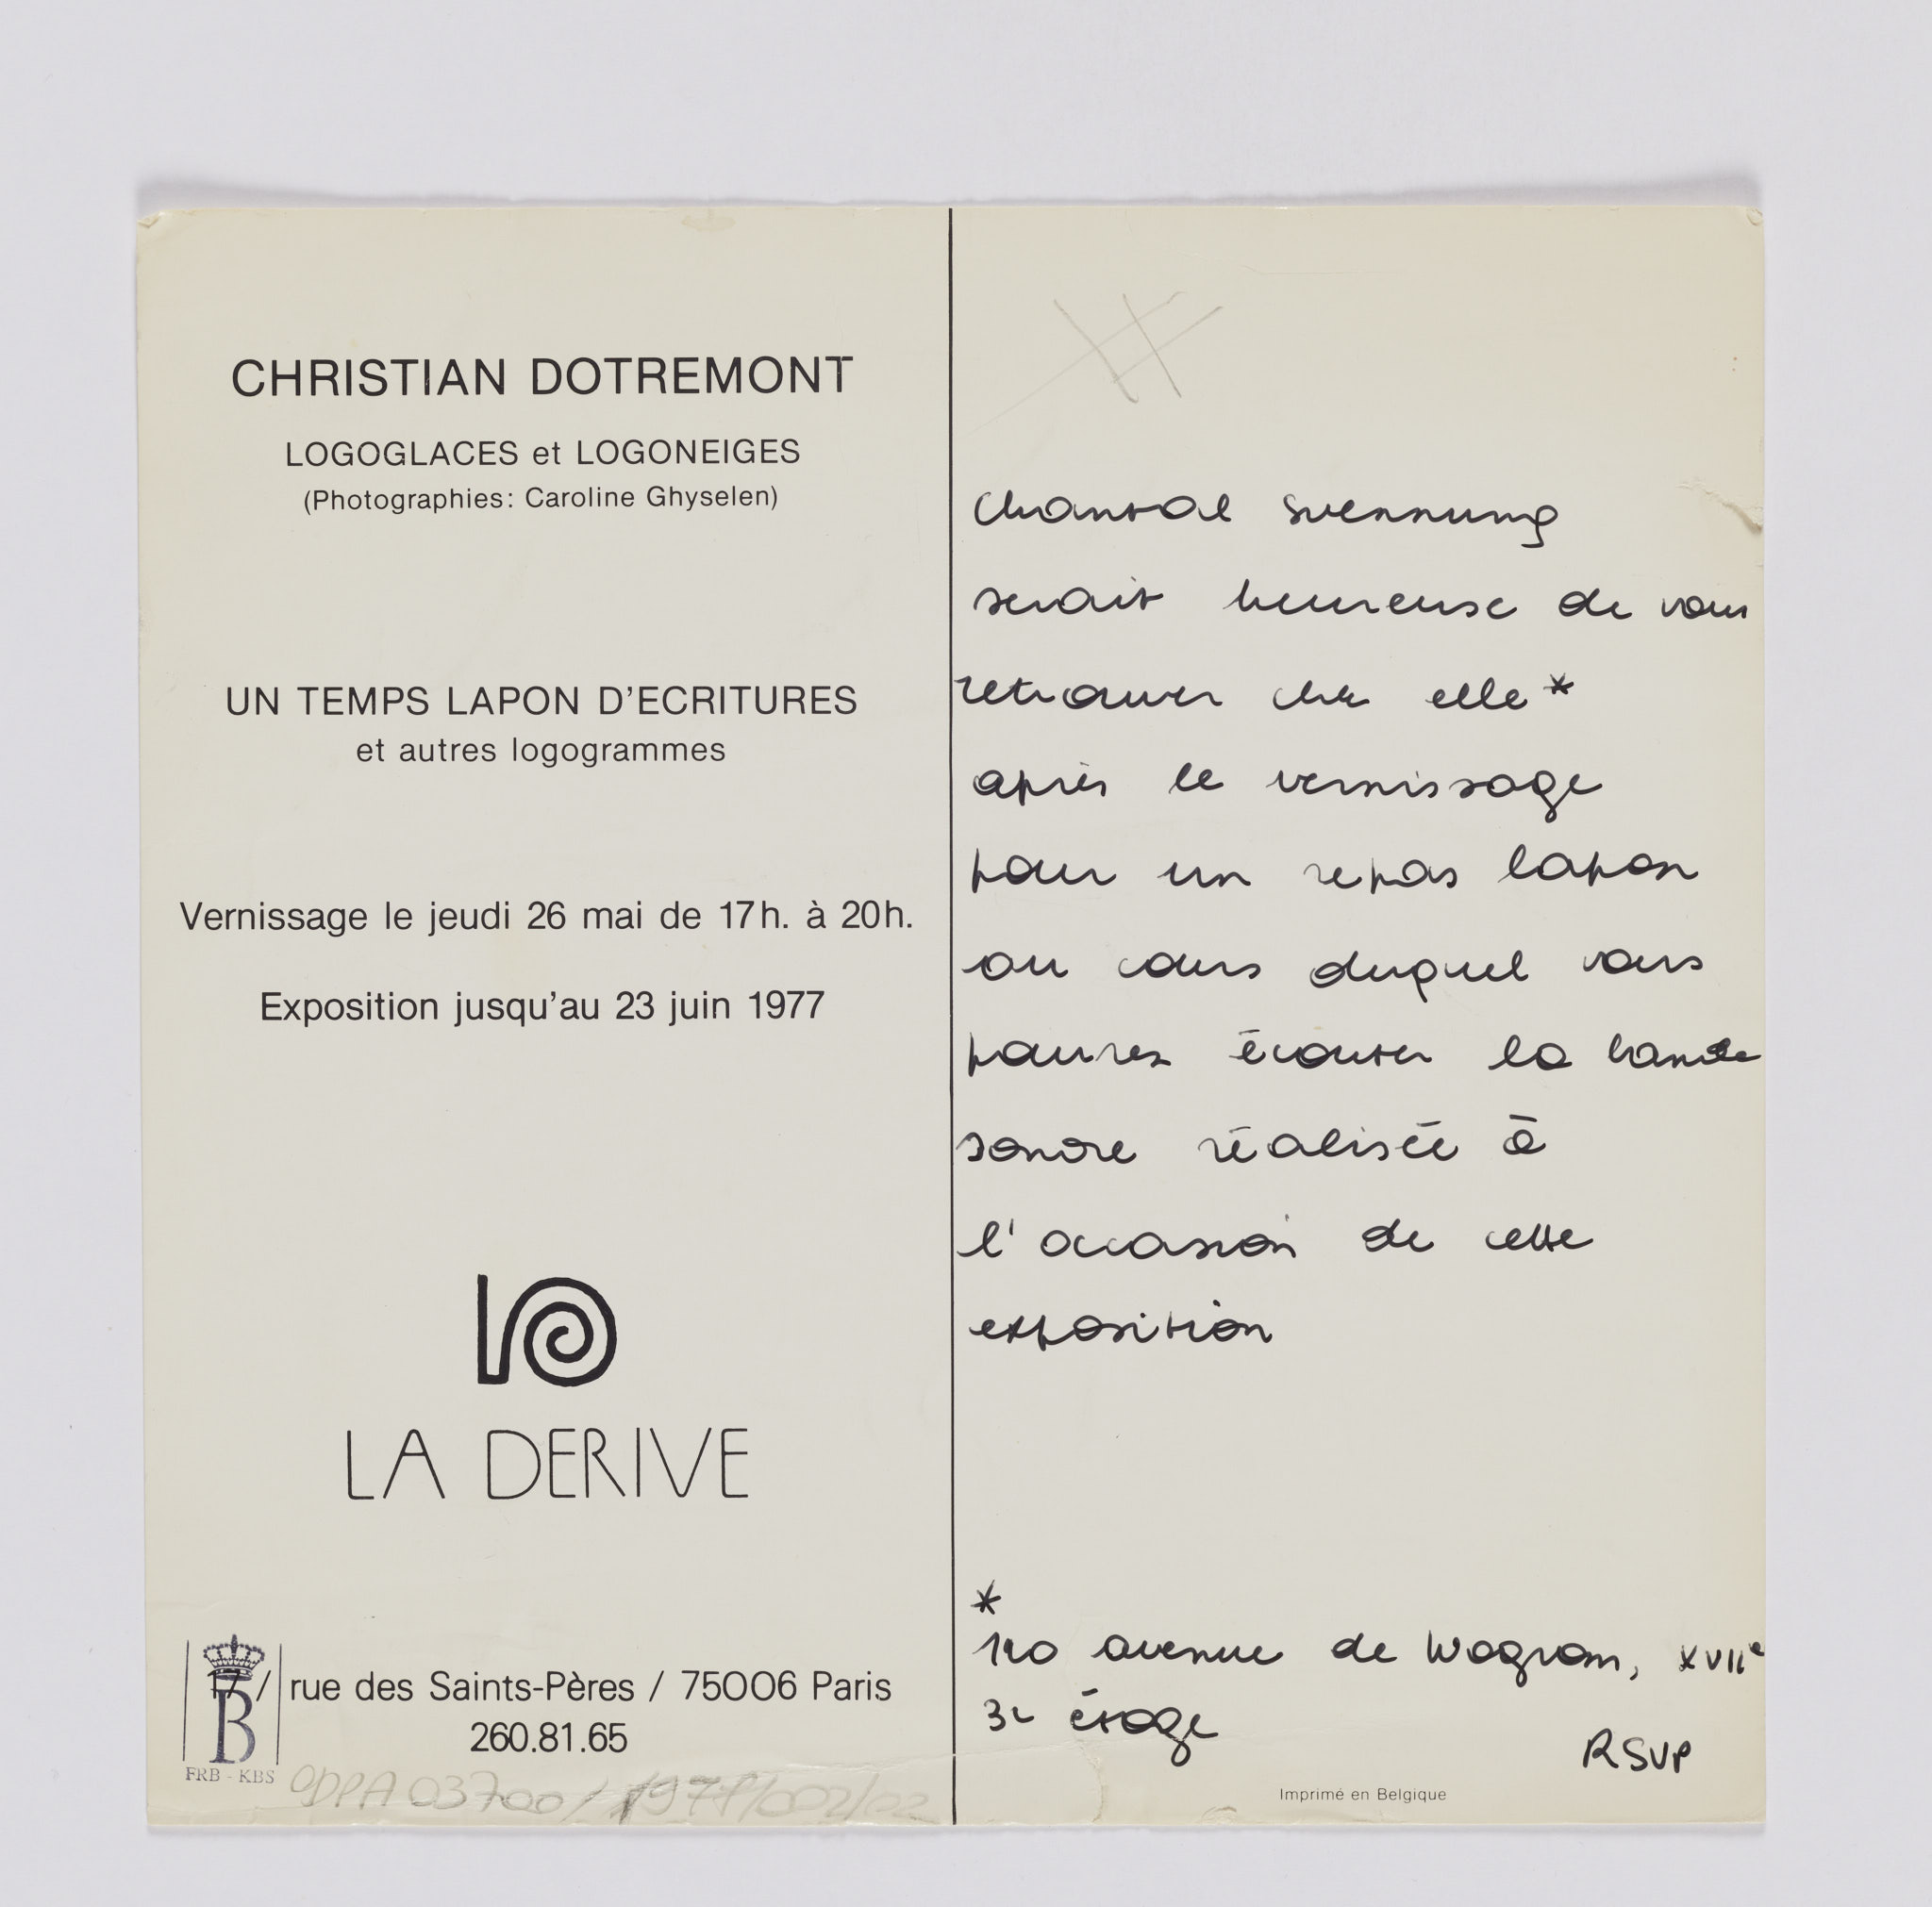 CHRISTIAN DOTREMONT
LOGOGLACES et LOGONEIGES
(Photographies: Caroline Ghyselen)
UN TEMPS LAPON D'ECRITURES
et autres logogrammes
Vernissage le jeudi 26 mai de 17h. à 20h.
Exposition jusqu'au 23 juin 1977
LA DERIVE
17 / rue des Saints-Pères / 75006 Paris
260.81.65
B
FRB - KBS
ODPA 03700/1977/002/02
Chantal Svennung
serait heureuse de vous
retrouver chez elle*
après le vernissage
pour un repas lapon
au cours duquel vous
pourrez écouter la bande
sonore réalisée à
l'occasion de cette
exposition
*
avenue de Wagram, XVIIe
3e étage
RSVP
Imprimé en Belgique